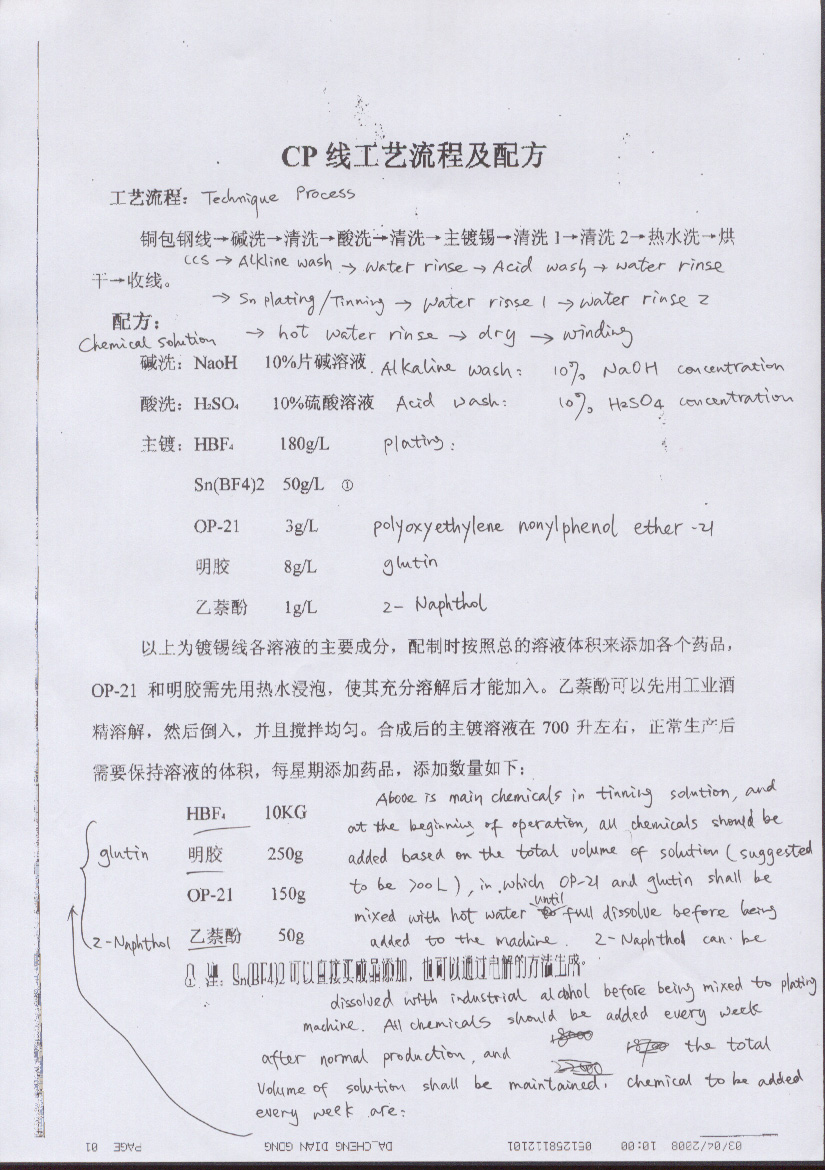 CP 线工艺流程及配方
工艺流程： Technique Process
铜包钢线→碱洗→清洗→酸洗→清洗→主镀锡→清洗 1→清洗 2→热水洗→烘
CCS → Alkline wash → water rinse → Acid wash → water rinse
干→收线。
→ Sn plating/Tinning → water rinse 1 → water rinse 2
配方：
Chemical solution → hot water rinse → dry → winding
碱洗：NaoH 10%片碱溶液 Alkaline wash: 10% NaOH concentration
酸洗：H₂SO₄ 10%硫酸溶液 Acid wash: 10% H₂SO4 concentration
主镀：HBF₄ 180g/L plating:
Sn(BF4)2 50g/L ①
OP-21 3g/L polyoxyethylene nonylphenol ether -21
明胶 8g/L glutin
乙萘酚 1g/L 2- Naphthol
以上为镀锡线各溶液的主要成分，配制时按照总的溶液体积来添加各个药品，
OP-21 和明胶需先用热水浸泡，使其充分溶解后才能加入。乙萘酚可以先用工业酒
精溶解，然后倒入，并且搅拌均匀。合成后的主镀溶液在 700 升左右，正常生产后
需要保持溶液的体积，每星期添加药品，添加数量如下：
HBF₄ 10KG
glutin 明胶 250g
OP-21 150g
2-Naphthol 乙萘酚 50g
Above is main chemicals in tinning solution, and
at the beginning of operation, all chemicals should be
added based on the total volume of solution (suggested
to be 700L), in which OP-21 and glutin shall be
mixed with hot water until full dissolve before being
added to the machine. 2-Naphthol can be
① 注：Sn(BF4)2 可以直接买成品添加，也可以通过电解的方法生成。
dissolved with industrial alcohol before being mixed to plating
machine. All chemicals should be added every week
after normal production, and the total
volume of solution shall be maintained, chemical to be added
every week are:
03/04/2008 10:00 051258112101 DA_CHENG DIAN GONG PAGE 01